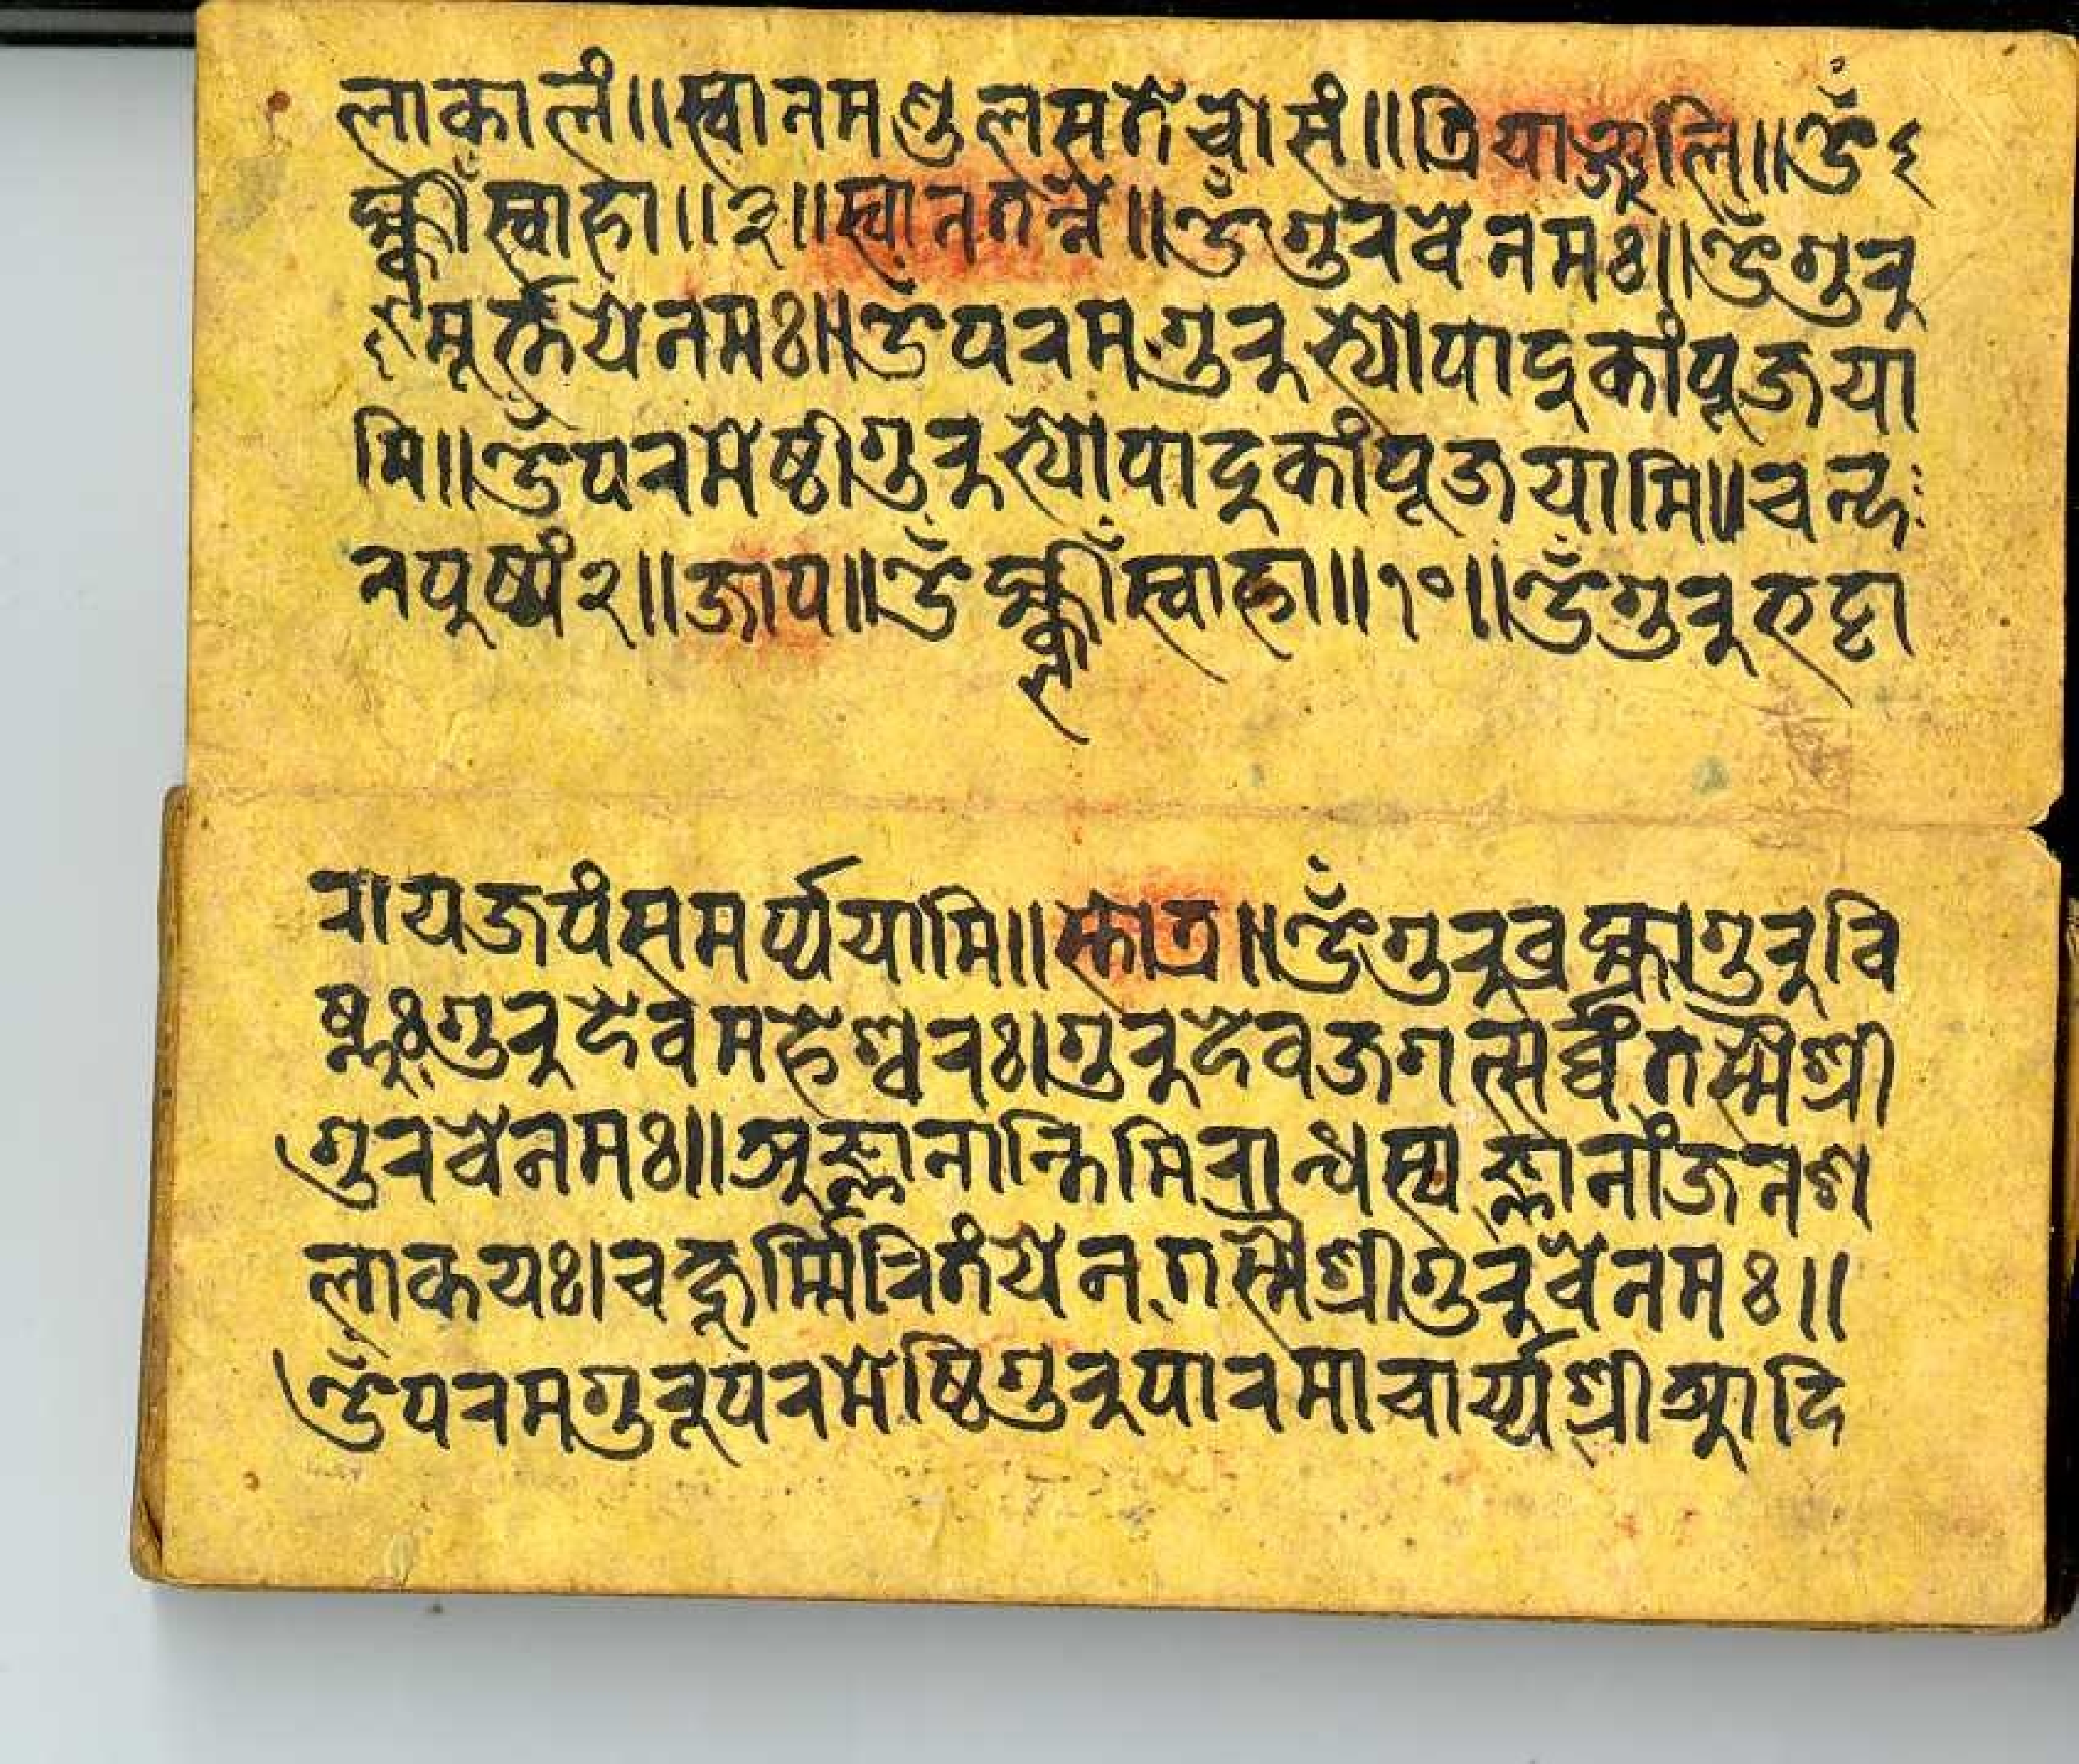 लाकालं॥स्वानमण्डलसतंचोसं॥त्रियाञ्जलि॥ॐ
स्वाहा॥३॥स्वानतन्ने॥ॐगुरवेनमः॥ॐगुरु
मूर्त्तयेनमः॥ॐपरमगुरुभ्योपादुकांपूजया
मि॥ॐपरमेष्ठीगुरुभ्योपादुकांपूजयामि॥चन्द
नपुष्पं२॥जाप॥ॐ स्वाहा॥१०॥ॐगुरुभट्टा
रायजपंसमर्प्पयामि॥स्तोत्र॥ॐगुरुब्रह्मागुरुवि
ष्णुःगुरुदेवमहेश्वरः।गुरुदेवजगत्सर्व्वंतस्मैश्री
गुरवेनमः॥अज्ञानान्तिमिरान्धस्यज्ञानांजनश
लाकयः।चक्षुर्म्मिरितंयेनतस्मैश्रीगुरुवेनमः॥
ॐपरमगुरूपरमेष्ठिगुरुपारमाचार्य्यश्रीआदि